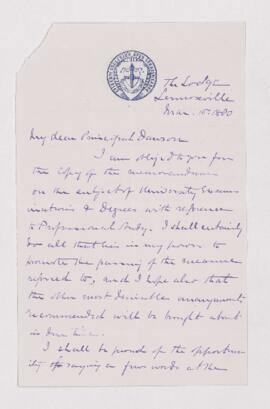 The Lodge
Lennoxville
Mar. 15. 1880
My dear Principal Dawson
I am obliged to you for
the copy of the memorandum
on the subject of University Exam
inations & Degrees with reference
to Professional Study. I shall certainly
do all that lies in my power to
promote the passing of the measure
referred to, and I hope also that
the other most desirable arrangements
recommended will be brought about
in due time.
I shall be proud of the opportun
ity of saying a few words at the